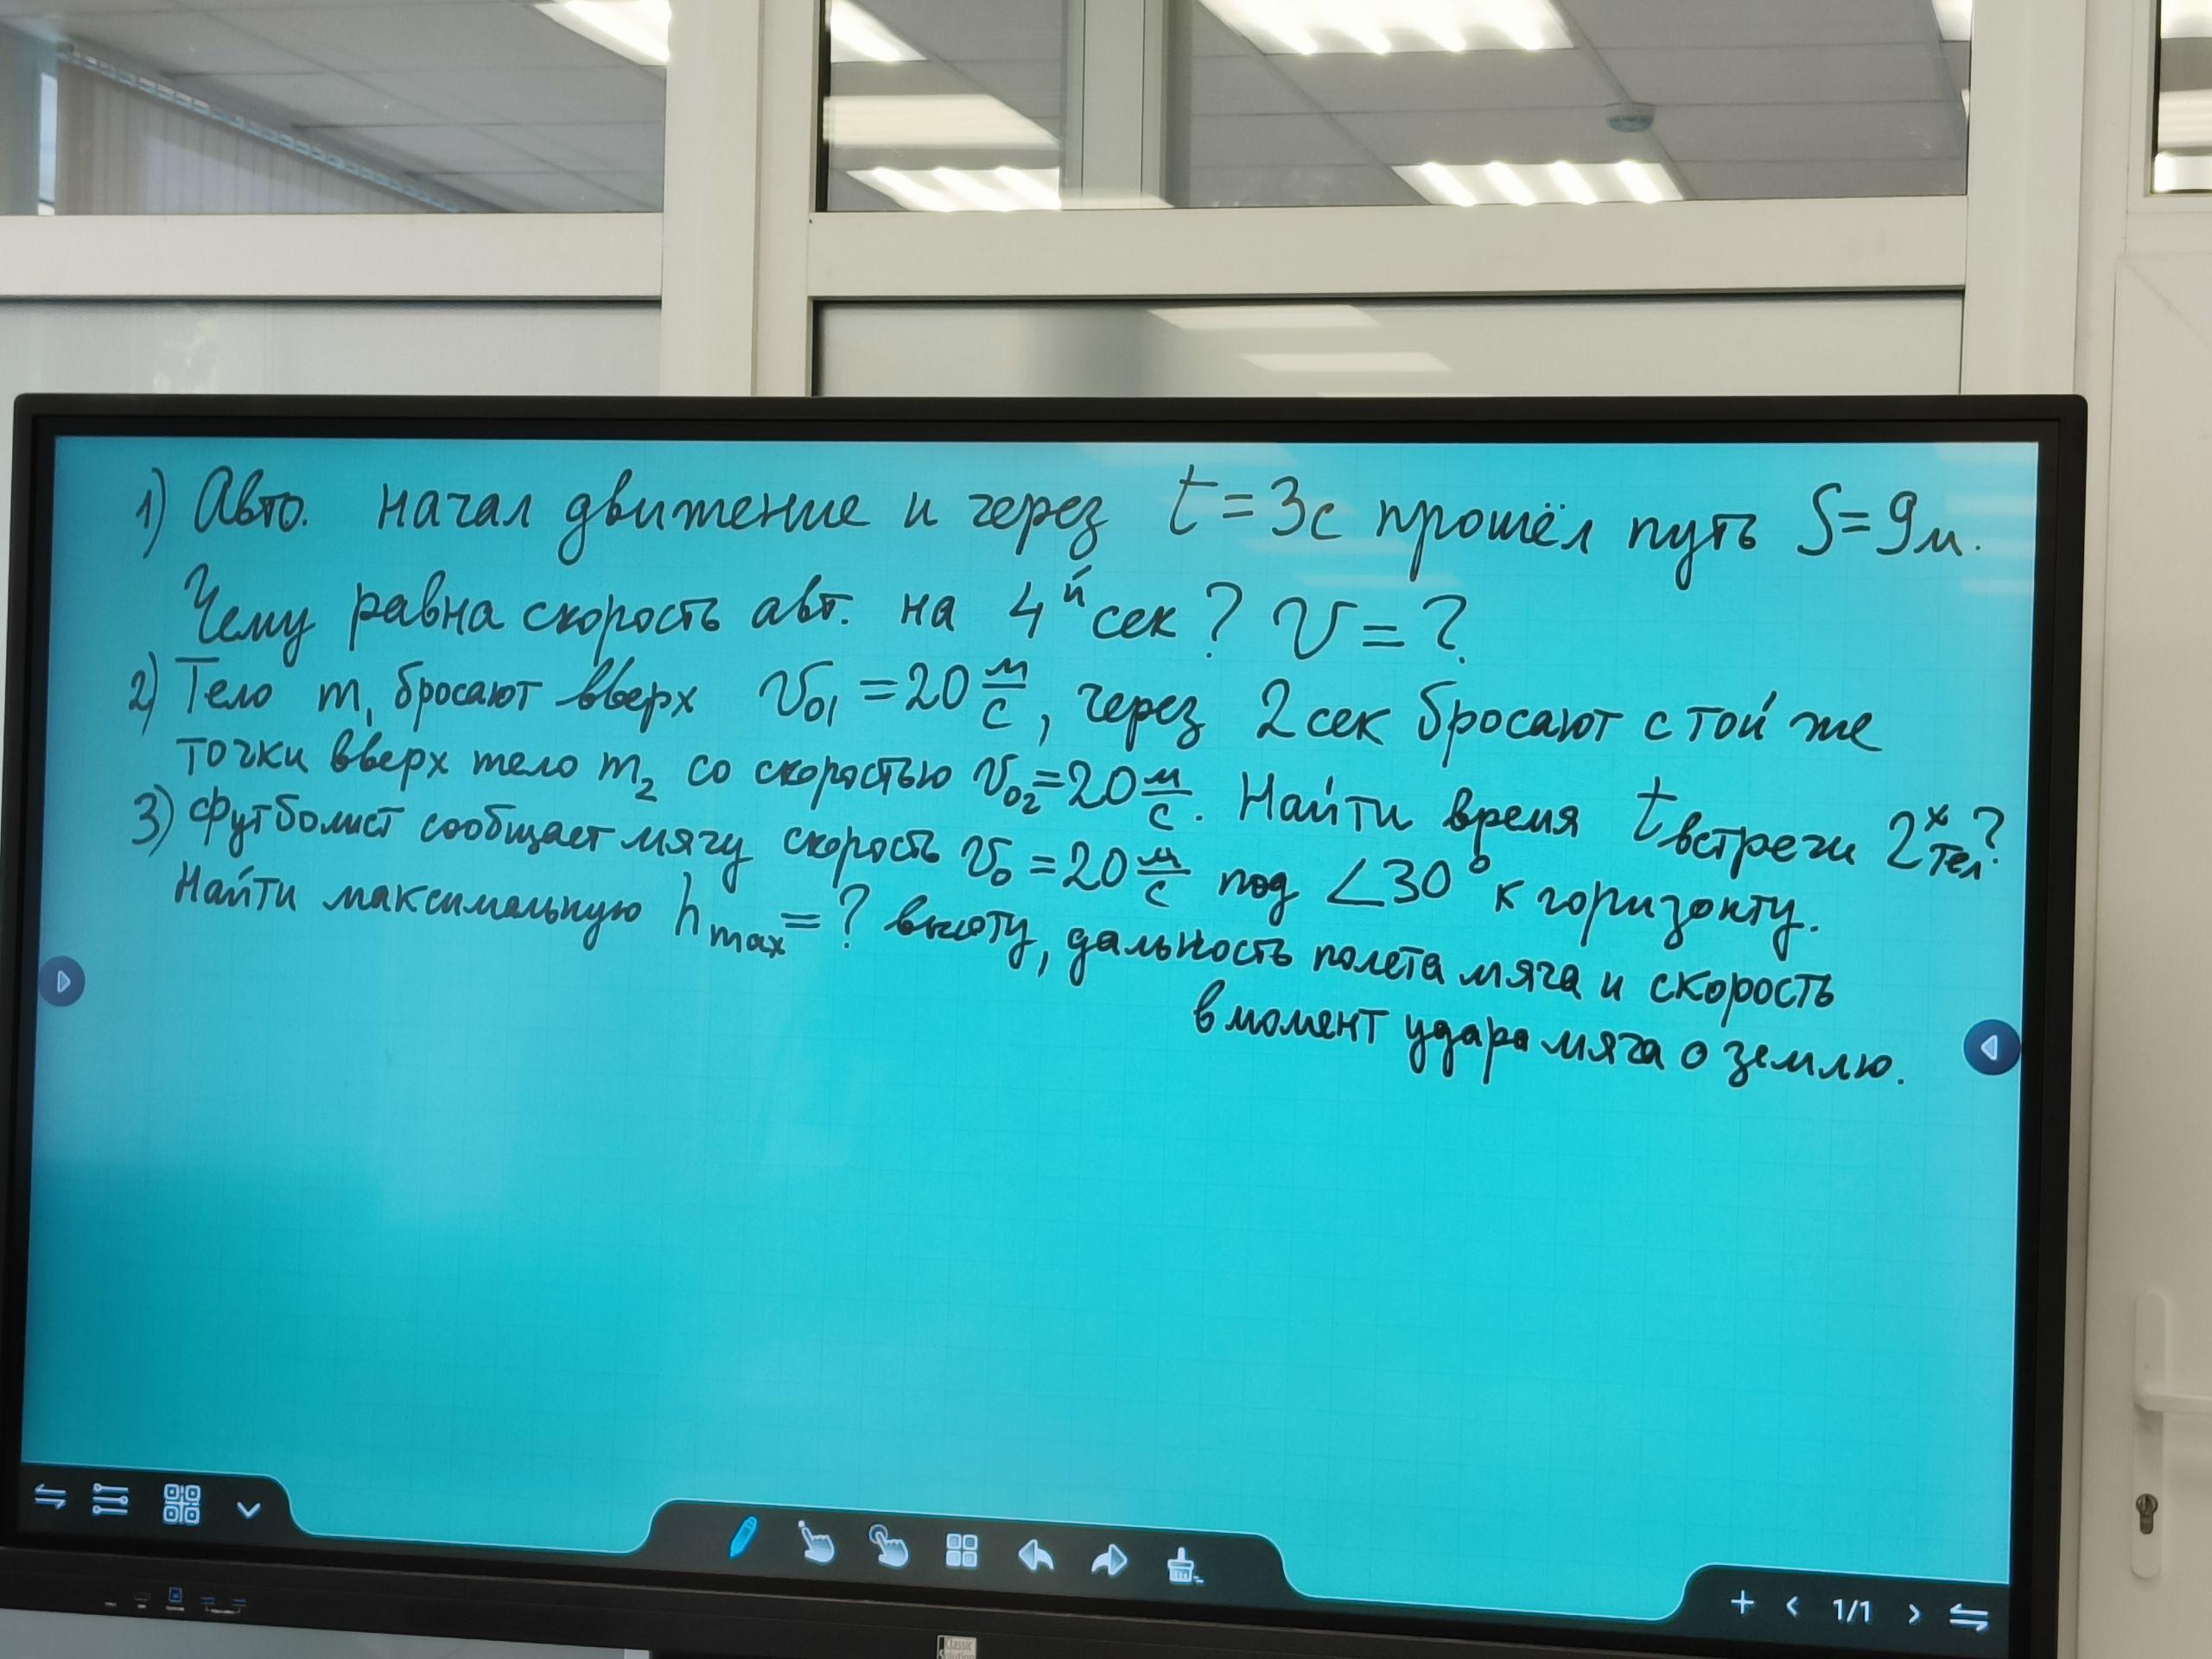 1) Авто. начал движение и через t=3с прошёл путь S=9м.
Чему равна скорость авт. на 4й сек? V=?
2) Тело m₁ бросают вверх V₀₁=20 м/с, через 2 сек бросают с той же
точки вверх тело m₂ со скоростью V₀₂=20 м/с. Найти время t встречи 2х тел?
3) Футболист сообщает мячу скорость V₀=20 м/с под ∠30° к горизонту.
Найти максимальную hmax=? высоту, дальность полета мяча и скорость
в момент удара мяча о землю.
1/1
Classic Solution